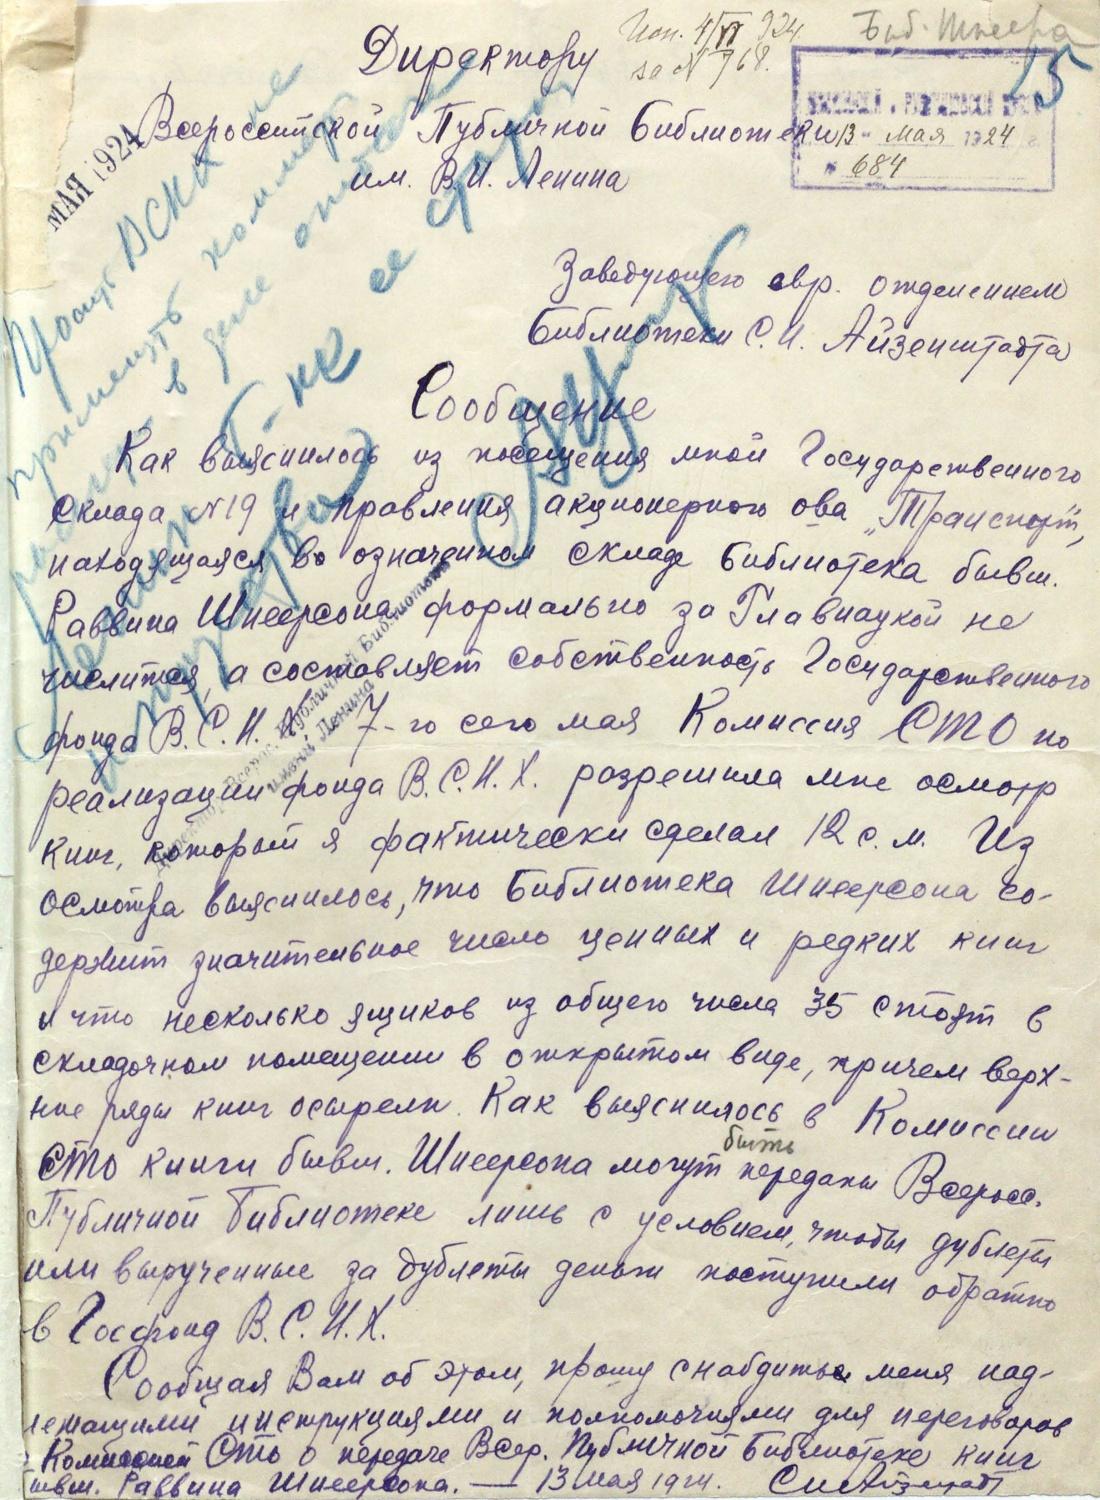 Исп. 4/VI 924.
за № 768.
Биб. Шнеера
5
Директору
13 мая 1924
№ 684
МАЯ 1924
Всероссийской Публичной Библиотеки
им. В.И. Ленина
Прошу ВСНХ
Заведующего евр. отделением
Библиотеки С.И. Айзенштадта
Сообщение
Как выяснилось из посещения мной Государственного
склада №19 и правления акционерного о-ва „Транспорт",
находящаяся во означенном складе Библиотека бывш.
Раввина Шнеерсона формально за Главнаукой не
числится, а составляет собственность Государственного
фонда В.С.Н.Х. 7-го сего мая Комиссия СТО по
реализации фонда В.С.Н.Х. разрешила мне осмотр
книг, который я фактически сделал 12 с.м. Из
осмотра выяснилось, что Библиотека Шнеерсона со-
держит значительное число ценных и редких книг
и что несколько ящиков из общего числа 35 стоят в
складочном помещении в открытом виде, причем верх-
ние ряды книг осырели. Как выяснилось в Комиссии
СТО книги бывш. Шнеерсона могут быть переданы Всеросс.
Публичной Библиотеке лишь с условием, чтобы дублеты
или вырученные за дублеты деньги поступили обратно
в Госфонд В.С.Н.Х.
Сообщая Вам об этом, прошу снабдить меня над-
лежащими инструкциями и полномочиями для переговоров
с Комиссией СТО о передаче Всер. Публичной Библиотеке книг
бывш. Раввина Шнеерсона. — 13 мая 1924. С.И. Айзенштадт
Директор Всерос. Публичной Библиотеки
имени Ленина